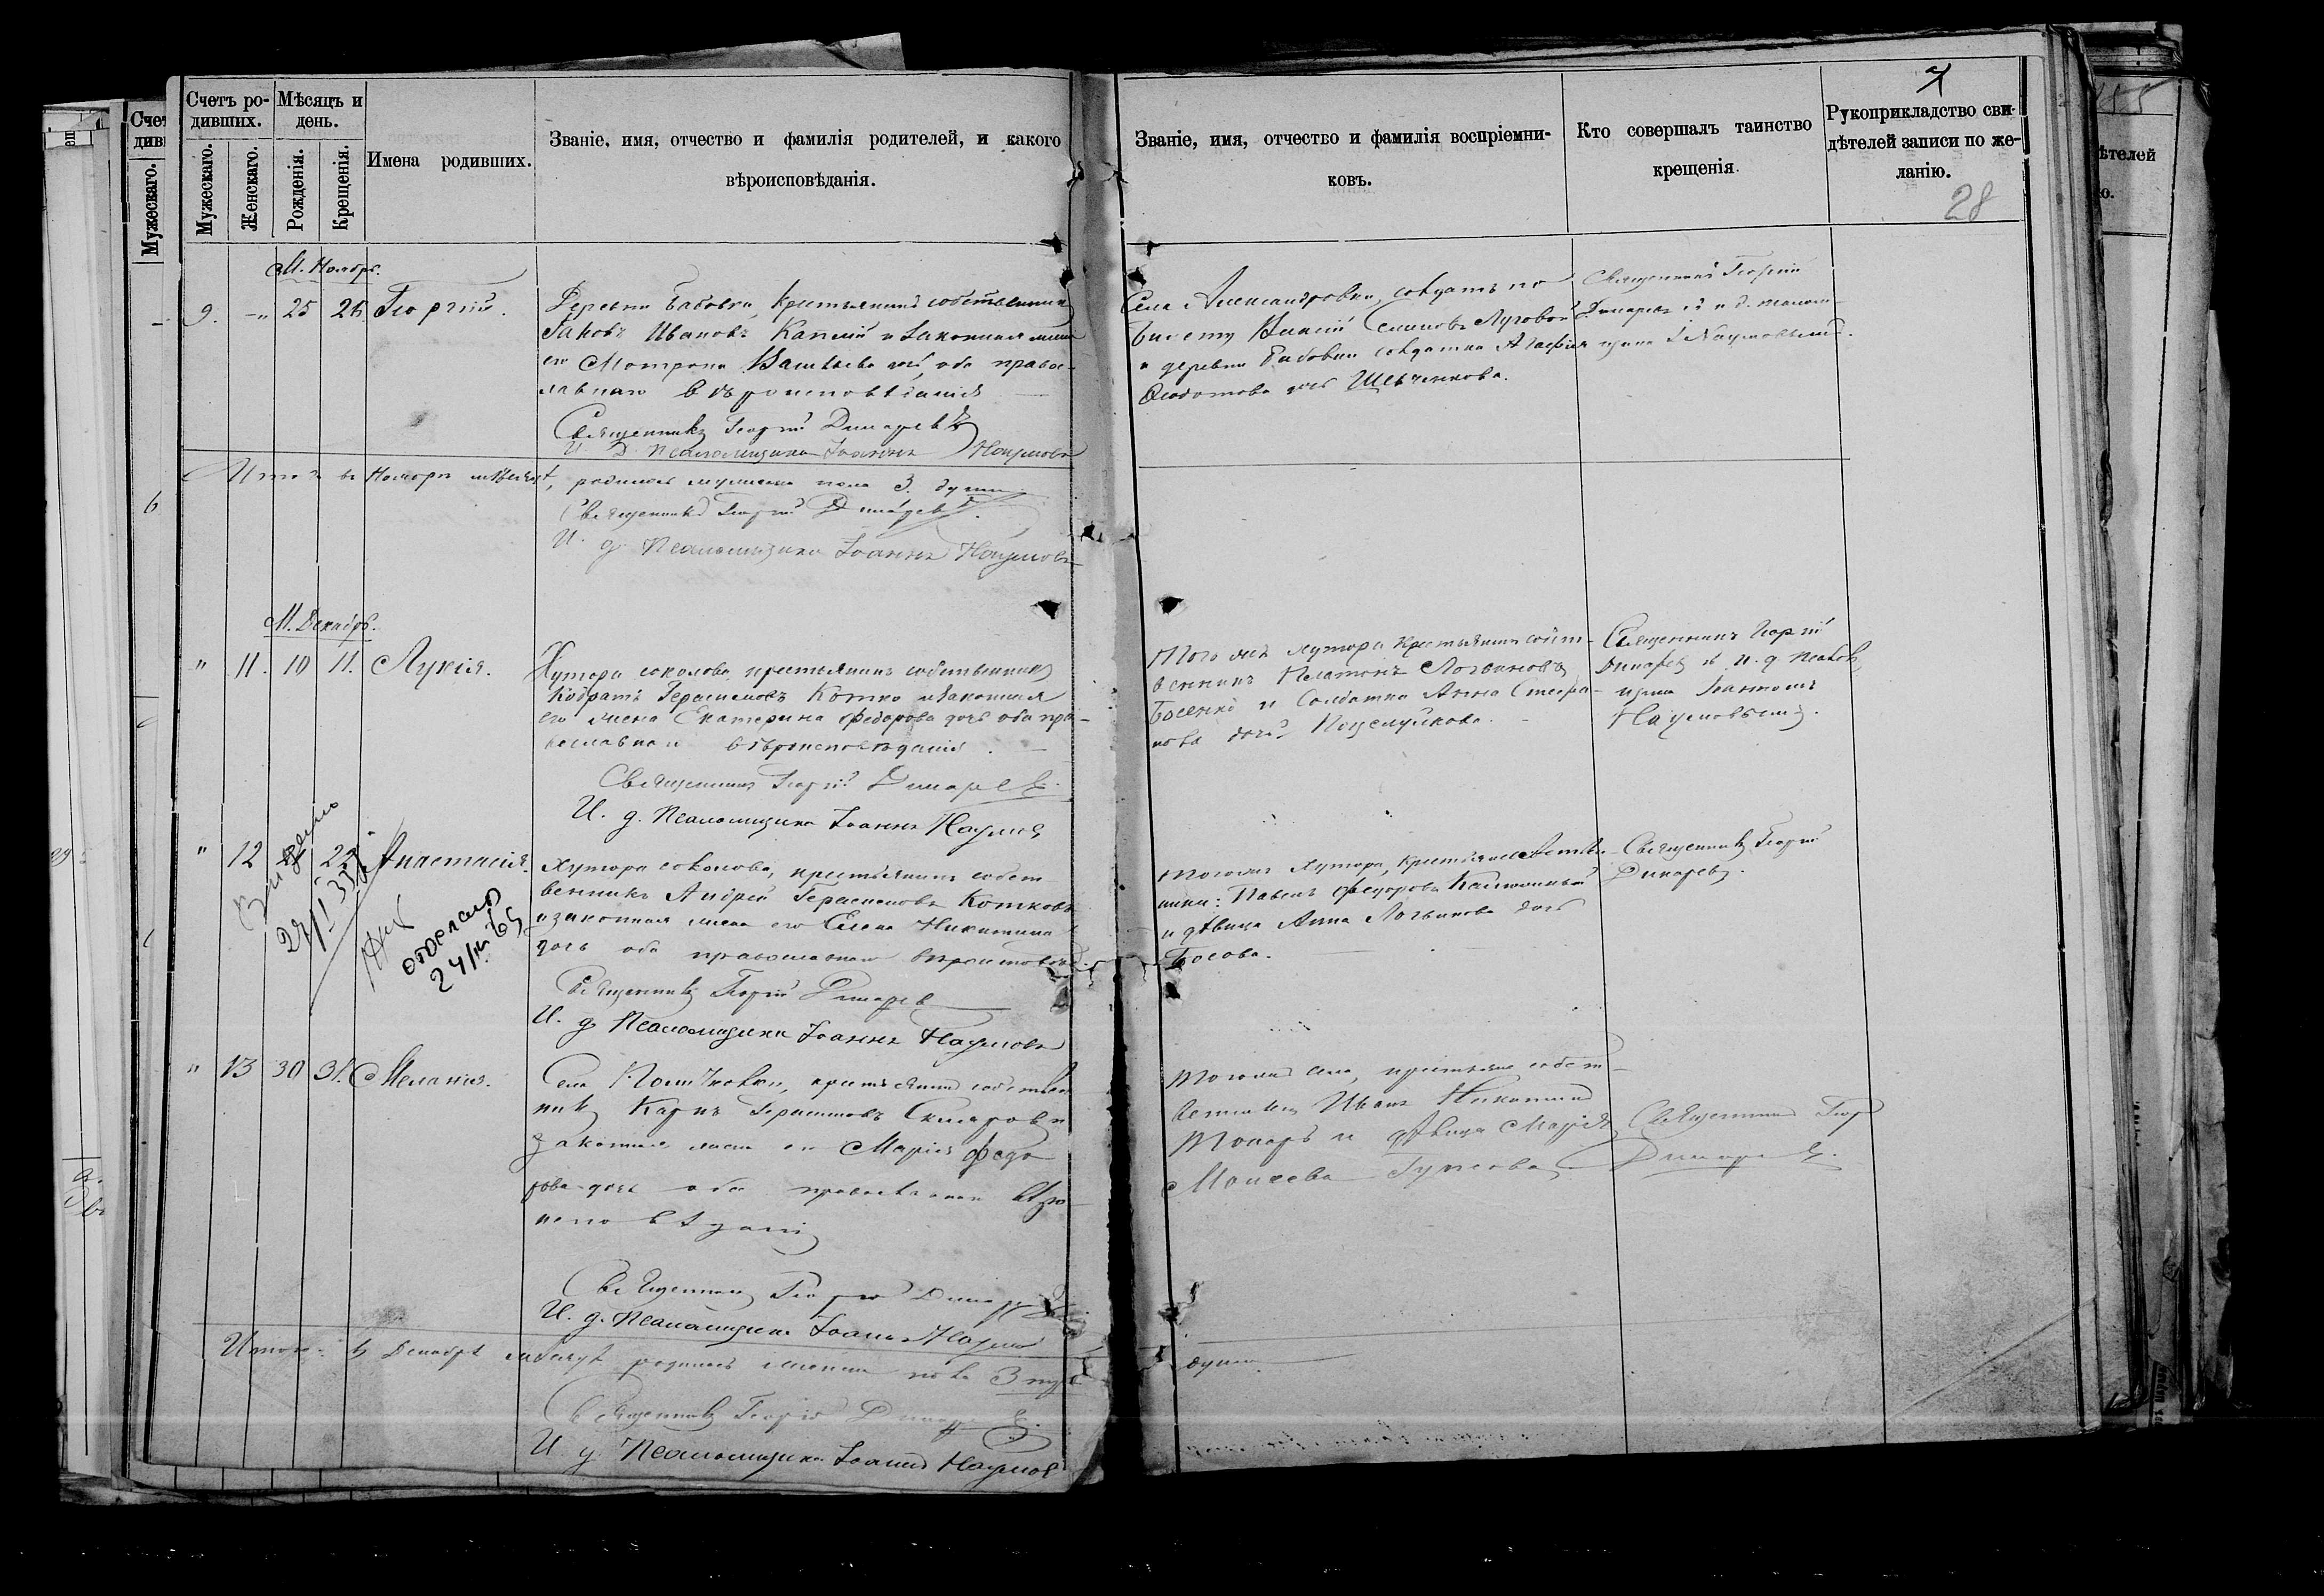 Счетъ ро-
дившихъ.
Мѣсяцъ и
день.
Мужескаго.
Женскаго.
Рожденія.
Крещенія.
Имена родивших.
Званіе, имя, отчество и фамилія родителей, и какого
вѣроисповѣданія.
Званіе, имя, отчество и фамилія воспріемни-
ковъ.
Кто совершалъ таинство
крещенія.
Рукоприкладство сви-
дѣтелей записи по же-
ланію.
28
М. Ноябрь.
9. 25 26 Георгій.
Деревни Бабовки, Крестьянинъ собственникъ
Яковъ Ивановъ и законная жена
его Мотрона Васильева дочь, оба право-
славнаго вѣроисповѣданія
Священникъ Георгій Динаревъ
И. д. Псаломщика Іоаннъ Наумовъ
Села Александровки, солдатъ по
билету Семеновъ Луговой
и деревни Бабовки солдатка Агафія
Федотова дочь Шевченкова.
Священникъ Георгій
Динаревъ съ и. д. псалом-
щика І. Наумовымъ.
Итого въ Ноябрѣ мѣсяцѣ, родилось мужеска пола 3. души
Священникъ Георгій Динаревъ
И. д. Псаломщика Іоаннъ Наумовъ
М. Декабрь.
" 11. 10 11. Лукія.
Хутора соколова, крестьянинъ собственникъ
Кондратъ Герасимовъ Котко и законная
его жена Екатерина Федорова дочь оба пра-
вославнаго вѣроисповѣданія.
Священникъ Георгій Динаревъ.
И. д. Псаломщика Іоаннъ Наумовъ
Того же хутора Крестьянинъ собст-
венникъ Платонъ Логвиновъ
Босенко и Солдатка Анна Стефа-
нова дочь Поцелуйкова.
Священникъ Георгій
Динаревъ съ и. д. псалом-
щика Іоанномъ
Наумовымъ.
" 12 22 Анастасія.
Хутора соколова, крестьянинъ собст
венникъ Андрей Герасимовъ Котковъ
и законная жена его Елена Никитина
дочь оба православнаго вѣроисповѣд.
Священникъ Георгій Динаревъ
И. д. Псаломщика Іоаннъ Наумовъ
отослано
24/III 69
тогоже хутора, крестьяне собстве-
нники: Павелъ Федоровъ
и дѣвица Анна Логвинова дочь
Босова.
Священникъ Георгій
Динаревъ.
" 13 30 31. Меланія.
Села крестьянинъ собствен
никъ Карпъ Герасимовъ Скляровъ и
законная жена его Марія Федо
рова дочь оба православнаго вѣро
исповѣданія
Священникъ Георгій Динаревъ
И. д. Псаломщика Іоаннъ Наумовъ
тогоже села, крестьяне собст-
венникъ Иванъ Никитинъ
Токарь и дѣвица Марія
Моисеева
Священникъ Геор
Динаревъ.
Итого въ Декабрѣ мѣсяцѣ родилось женска пола 3 три
души.
Священникъ Георгій Динаревъ.
И. д. Псаломщика Іоаннъ Наумовъ